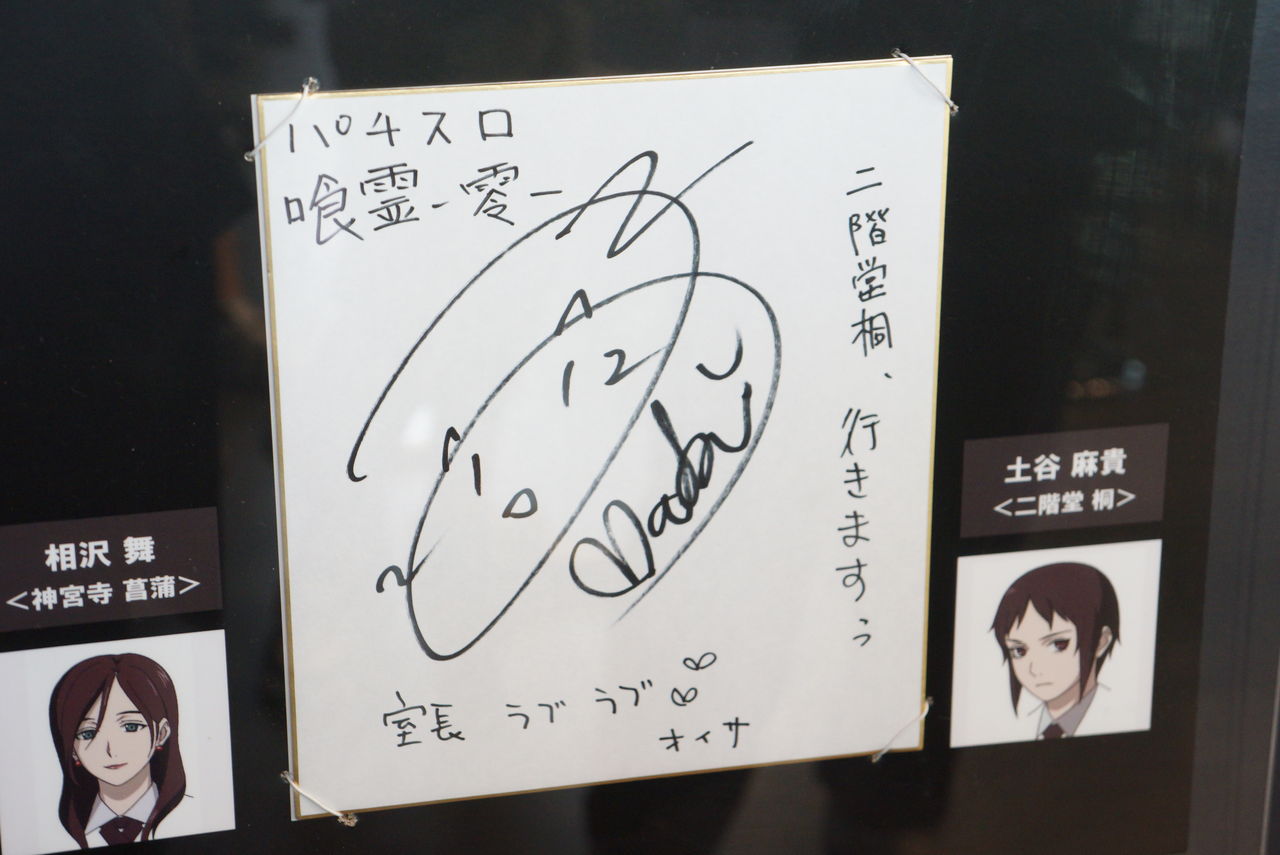 パチスロ
喰霊-零-
二階堂桐、行きますぅ
室長 ラブ ラブ
オィサ
相沢 舞
<神宮寺 菖蒲>
土谷 麻貴
<二階堂 桐>